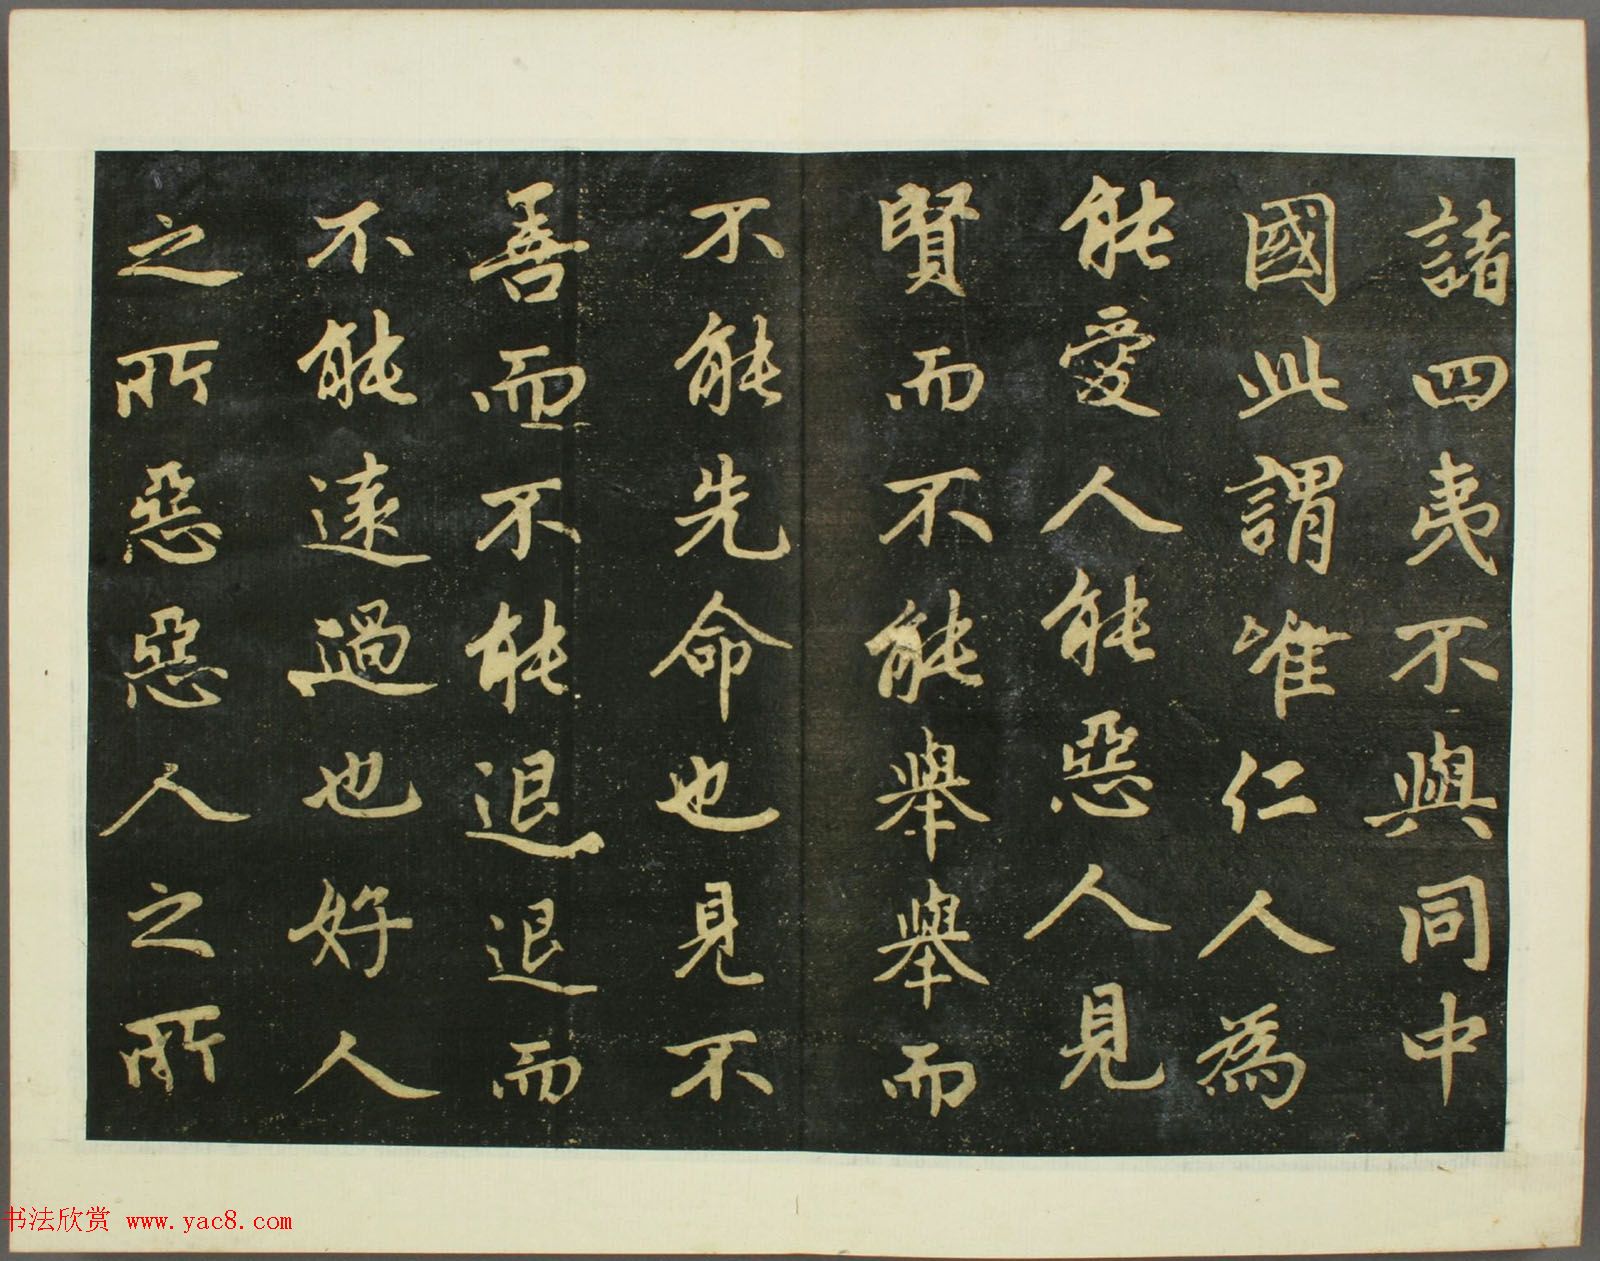 諸四夷不與同中
國此謂唯仁人為
能愛人能惡人見
賢而不能舉舉而
不能先命也見不
善而不能退退而
不能遠過也好人
之所惡惡人之所
书法欣赏 www.yac8.com